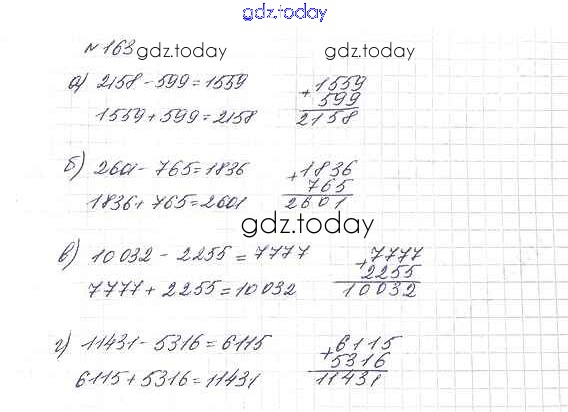 gdz.today
№ 163 gdz.today gdz.today
а) 2158 - 599 = 1559
1559 + 599 = 2158
+1559
599
2158
б) 2601 - 765 = 1836
1836 + 765 = 2601
+1836
765
2601
gdz.today
в) 10 032 - 2255 = 7777
7777 + 2255 = 10 032
+7777
2255
10032
г) 11431 - 5316 = 6115
6115 + 5316 = 11431
+6115
5316
11431